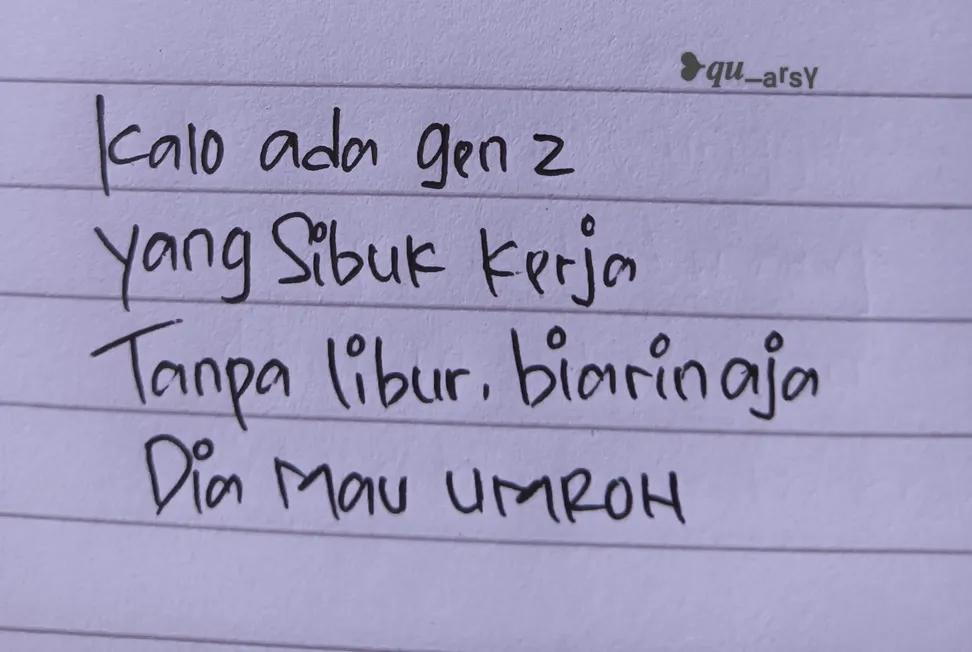 ❥qu_arsy
Kalo ada gen z
yang Sibuk Kerja
Tanpa libur. biarin aja
Dia Mau UMROH